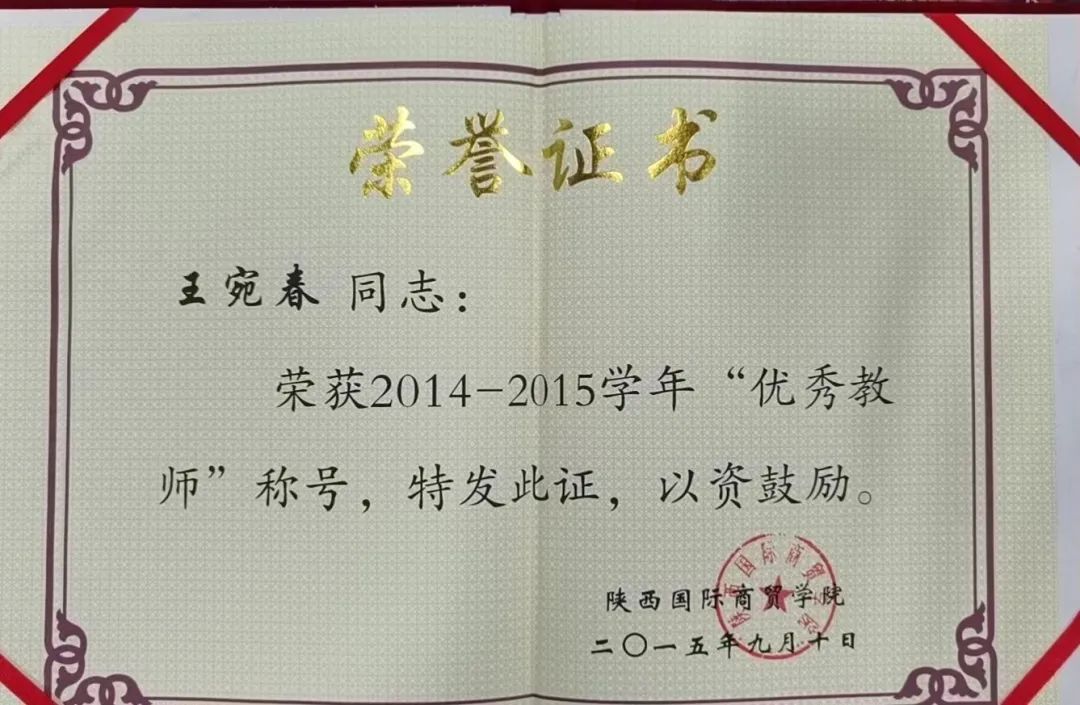 荣誉证书
王宛春 同志：
荣获2014-2015学年“优秀教
师”称号，特发此证，以资鼓励。
陕西国际商贸学院
二〇一五年九月十日
陕西国际商贸学院